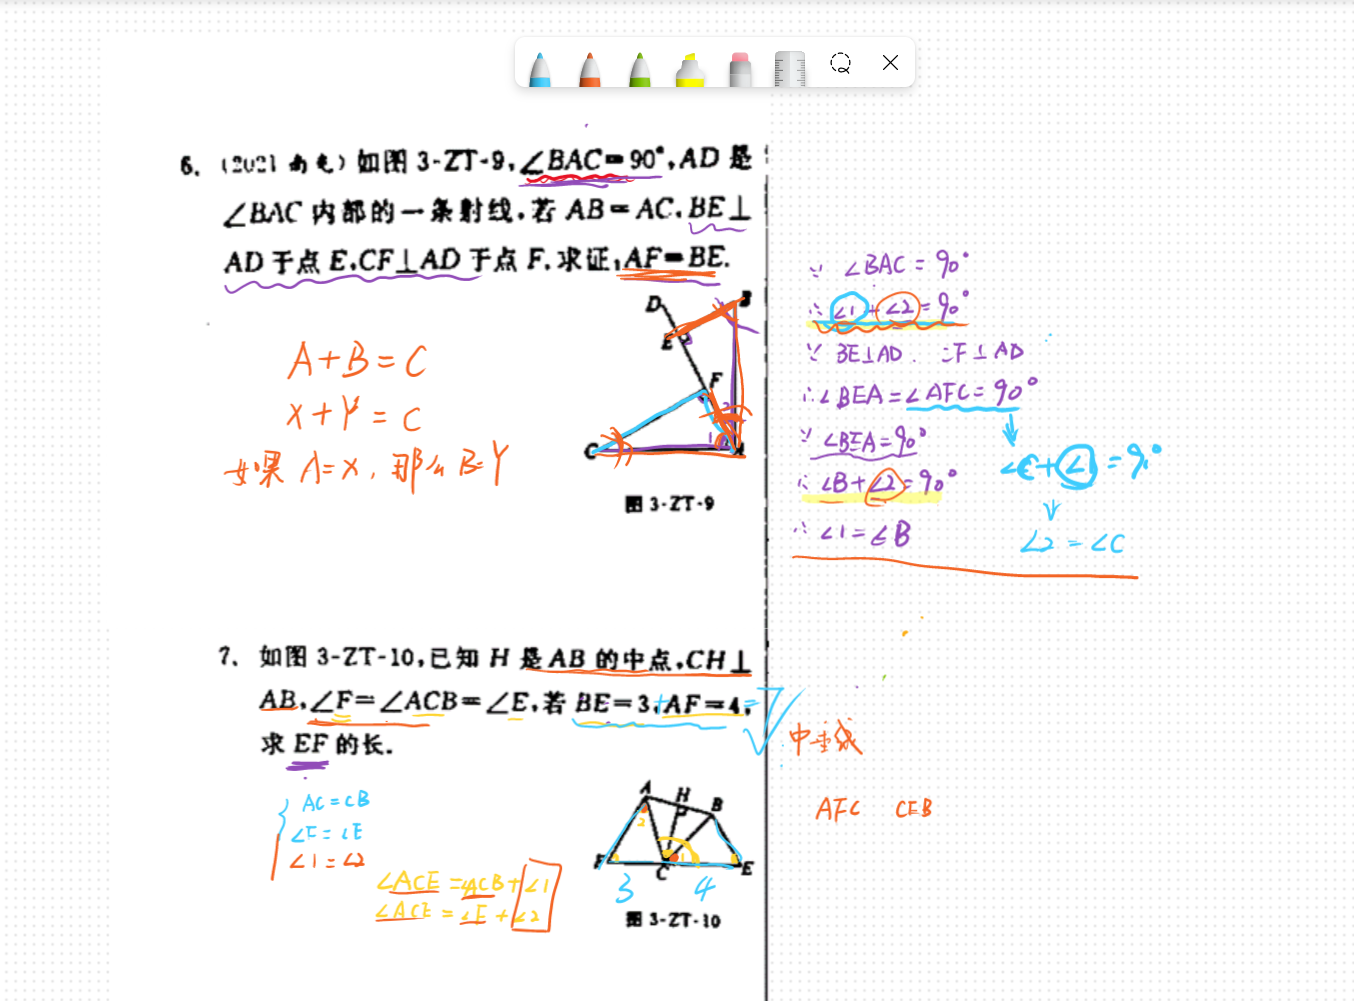 6. (2021 南充) 如图 3-ZT-9,∠BAC=90°,AD 是
∠BAC 内部的一条射线,若 AB=AC,BE⊥
AD 于点 E,CF⊥AD 于点 F.求证:AF=BE.
D
B
E
F
2
1
C
A
图 3-ZT-9
A+B=C
X+Y=C
如果 A=X,那么 B=Y
∵ ∠BAC=90°
∴ ∠1+∠2=90°
∵ BE⊥AD. CF⊥AD
∴∠BEA=∠AFC=90°
∵ ∠BEA=90°
∠C+∠1=90°
∴ ∠B+∠2=90°
∴ ∠1=∠B
∠2=∠C
7. 如图 3-ZT-10,已知 H 是 AB 的中点,CH⊥
AB,∠F=∠ACB=∠E,若 BE=3,AF=4,
+ =7
求 EF 的长.
中垂线
AC=CB
∠F=∠E
∠1=∠2
AFC CEB
∠ACE=∠ACB+∠1
∠ACE=∠E+∠2
A
H
B
2
F
1
C
E
3 4
图 3-ZT-10